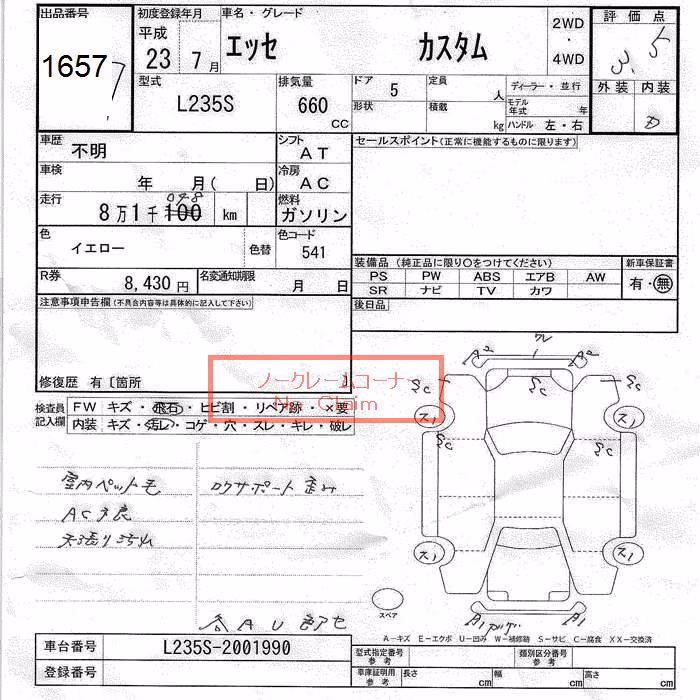 出品番号 初度登録年月 車名・グレード 2WD ・ 4WD 評価点
1657 平成 23年 7月 エッセ カスタム 3.5
型式 排気量 ドア 定員 人 ディーラー・並行 外装 内装
L235S 660 CC 5 形状 積載 kg モデル年式 年 ハンドル 左・右 D
車歴 不明 シフト AT セールスポイント(正常に機能するものに限ります)
車検 年 月( 日) 冷房 AC
走行 8万1千100 km 燃料 ガソリン
078
色 イエロー 色替 色コード 541
装備品 (純正品に限り〇をつけてください) 新車保証書
PS PW ABS エアB AW 有・無
R券 8,430円 名変通知期限 月 日
SR ナビ TV カワ
注意事項申告欄(不具合内容等は具体的に記入して下さい) 後日品
修復歴 有〔箇所 〕
ノークレームコーナー
No Claim
検査員記入欄 FW キズ・飛石・ヒビ割・リペア跡・×要
内装 キズ・汚レ・コゲ・穴・スレ・キレ・破レ
ワレ
A2 A2
室内ペット毛 ロクサポート歪み
AC不良
天張り汚れ
各AU
スペア
A1 A1
A-キズ E-エクボ U-凹み W-補修跡 S-サビ C-腐食 XX-交換済
車台番号 L235S-2001990 型式指定番号 参考 類別区分番号 参考
登録番号 車庫証明用 参考 長さ cm 幅 cm 高さ cm